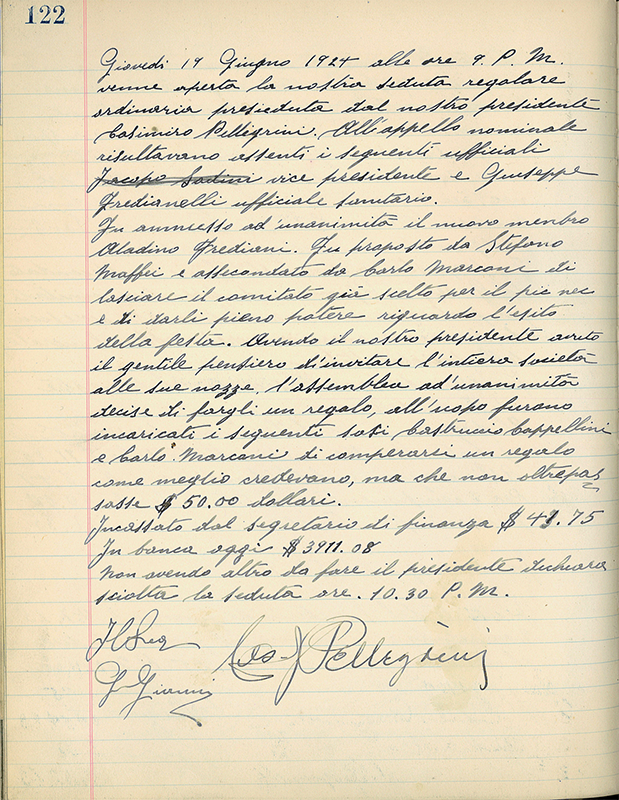 122
Giovedi 19 Giugno 1924 alle ore 9. P. M.
venne aperta la nostra seduta regolare
ordinaria presieduta dal nostro presidente
Casimiro Pellegrini. All'appello nominale
risultavano assenti i seguenti ufficiali
Jacopo Sodini vice presidente e Giuseppe
Fredianelli ufficiale sanitario.
Fu ammesso ad'unanimità il nuovo membro
Aladino Frediani. Fu proposto da Stefano
Maffei e assecondato da Carlo Marconi di
lasciare il comitato già scelto per il pic nec
e di darli pieno potere riguardo l'esito
della festa. Avendo il nostro presidente avuto
il gentile pensiero di'invitare l'intiera società
alle sue nozze, l'assemblea ad'unanimità
decise di fargli un regalo, all'uopo furano
incaricati i seguenti soci Castruccio Cappellini
e Carlo Marconi di comperarsi un regalo
come meglio credevano, ma che non oltrepas
sasse $ 50.00 dollari.
Incassato dal segretario di finanza $ 41.75
In banca oggi $ 3911.08
Non avendo altro da fare il presidente dichiara
sciolta la seduta ore. 10.30 P. M.
Il Seg
G Gianni
Cas J Pellegrini